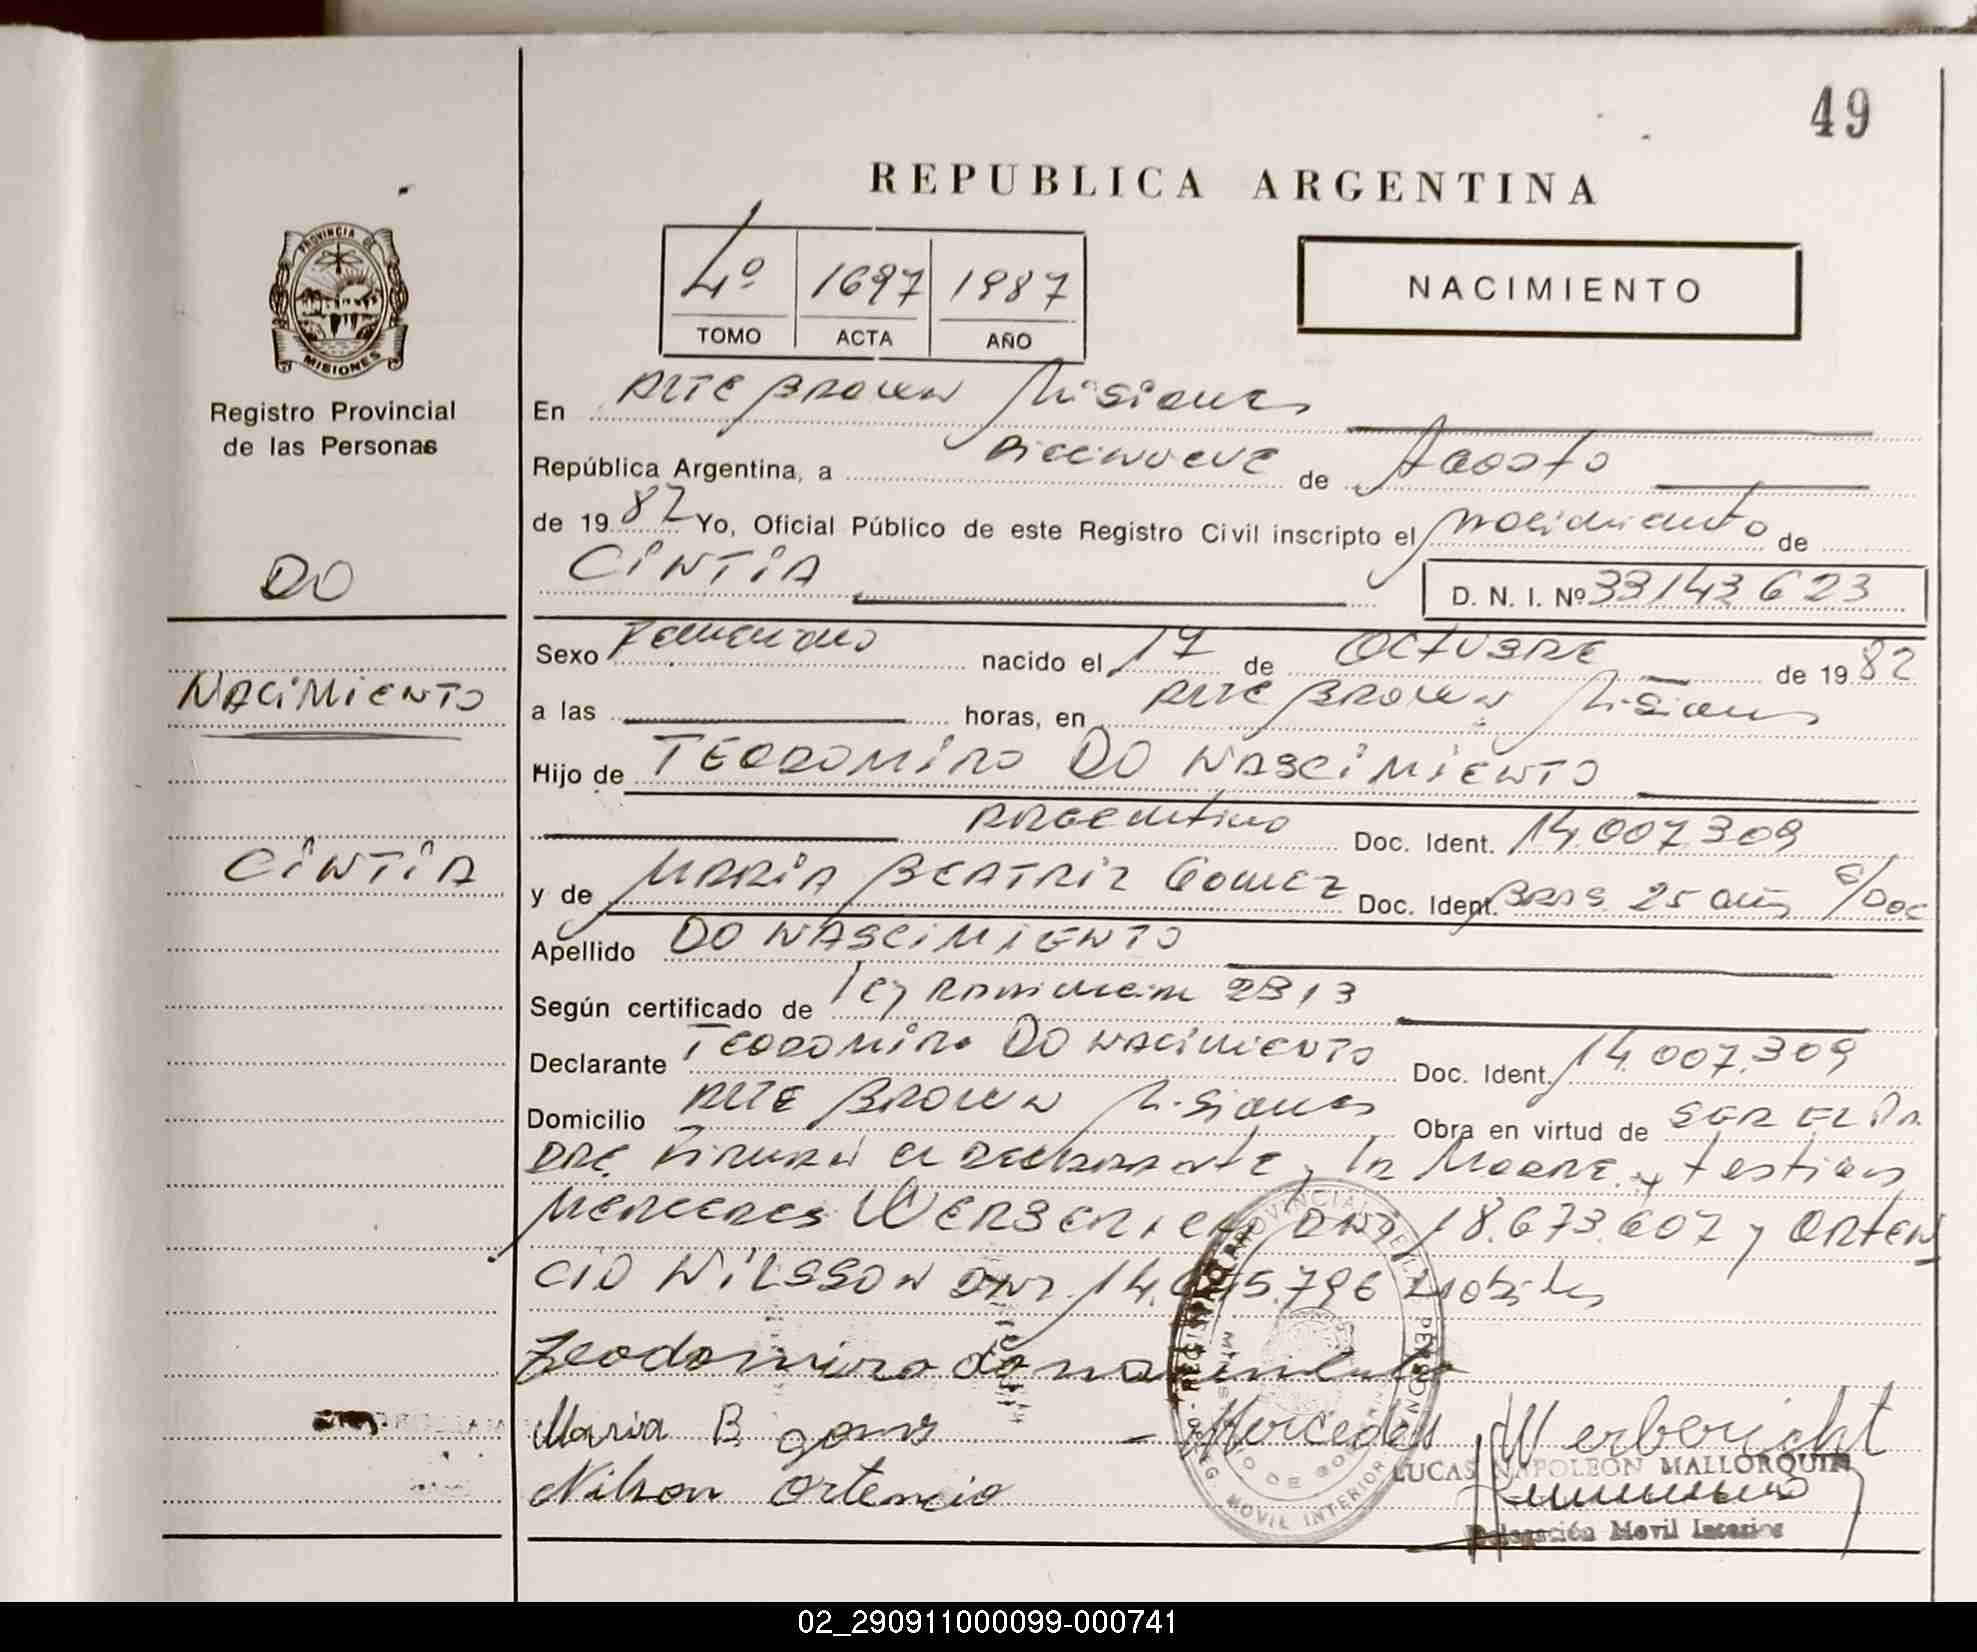 49
REPUBLICA ARGENTINA
PROVINCIA DE
MISIONES
4º 1697 1987
TOMO ACTA AÑO
NACIMIENTO
Registro Provincial
de las Personas
DO
NACIMIENTO
CINTIA
En ALTE BROWN Misiones
República Argentina, a Diecinueve de Agosto
de 1987 Yo, Oficial Público de este Registro Civil inscripto el nacimiento de
CINTIA D. N. I. Nº 33143623
Sexo Femenino nacido el 17 de OCTUBRE de 1982
a las horas, en ALTE BROWN Misiones
Hijo de TEODOMIRO DO NASCIMIENTO
Argentino Doc. Ident. 14.007.309
y de MARIA BEATRIZ GOMEZ Doc. Ident. BRAS. 25 años S/DOC
Apellido DO NASCIMIENTO
Según certificado de ley 2313
Declarante TEODOMIRO DO NACIMIENTO Doc. Ident. 14.007.309
Domicilio ALTE BROWN Misiones Obra en virtud de SER EL PA
DRE Firman el declarante, la Madre y testigos
MERCEDES DNI 18.673.607 y ORTEN
CIO WILSSON DNI 796
Teodomiro do nacimiento
Maria B gomes Mercedes Werbericht
Nilson Ortencio
LUCAS NAPOLEON MALLORQUIN
Delegación Movil Interior
02_290911000099-000741